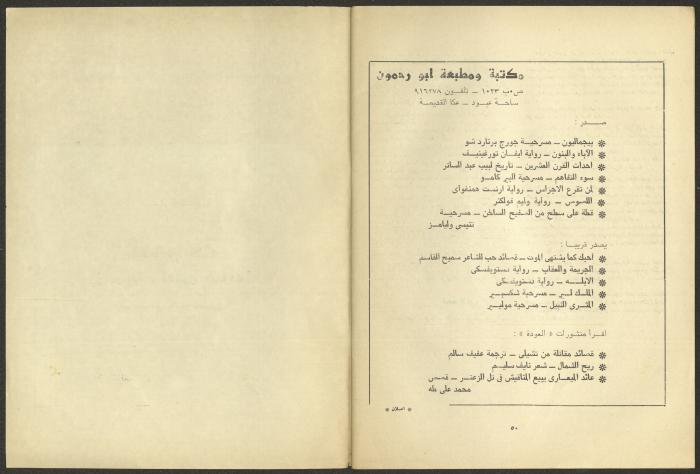 مكتبة ومطبعة ابو رحمون
ص.ب ١٠٢٣ ــ تلفون ٩١٦٢٧٨
ساحة عبود ــ عكا القديمة
صــدر :
* بيجماليون ــ مسرحية جورج برنارد شو
* الآباء والبنون ــ رواية ايفان تورغينيف
* احداث القرن العشرين ــ تاريخ لبيب عبد الساتر
* سوء التفاهم ــ مسرحية البير كامو
* لمن تقرع الاجراس ــ رواية ارنست همنغواى
* اللصوص ــ رواية وليم فولكنر
* قطة على سطح من الصفيح الساخن ــ مسرحية
تنيسى وليامز
يصدر قريبا :
* احبك كما يشتهى الموت ــ قصائد حب للشاعر سميح القاسم
* الجريمة والعقاب ــ رواية دستويفسكى
* الابله ــ رواية دستويفسكى
* الملك لير ــ مسرحية شكسبير
* المثرى النبيل ــ مسرحية موليير
اقرأ منشورات « العودة » :
* قصائد مقاتلة من تشيلى ــ ترجمة عفيف سالم
* ريح الشمال ــ شعر نايف سليم
* عائد الميعارى يبيع المناقيش فى تل الزعتر ــ قصص
محمد على طه
* اعلان *
٥٠